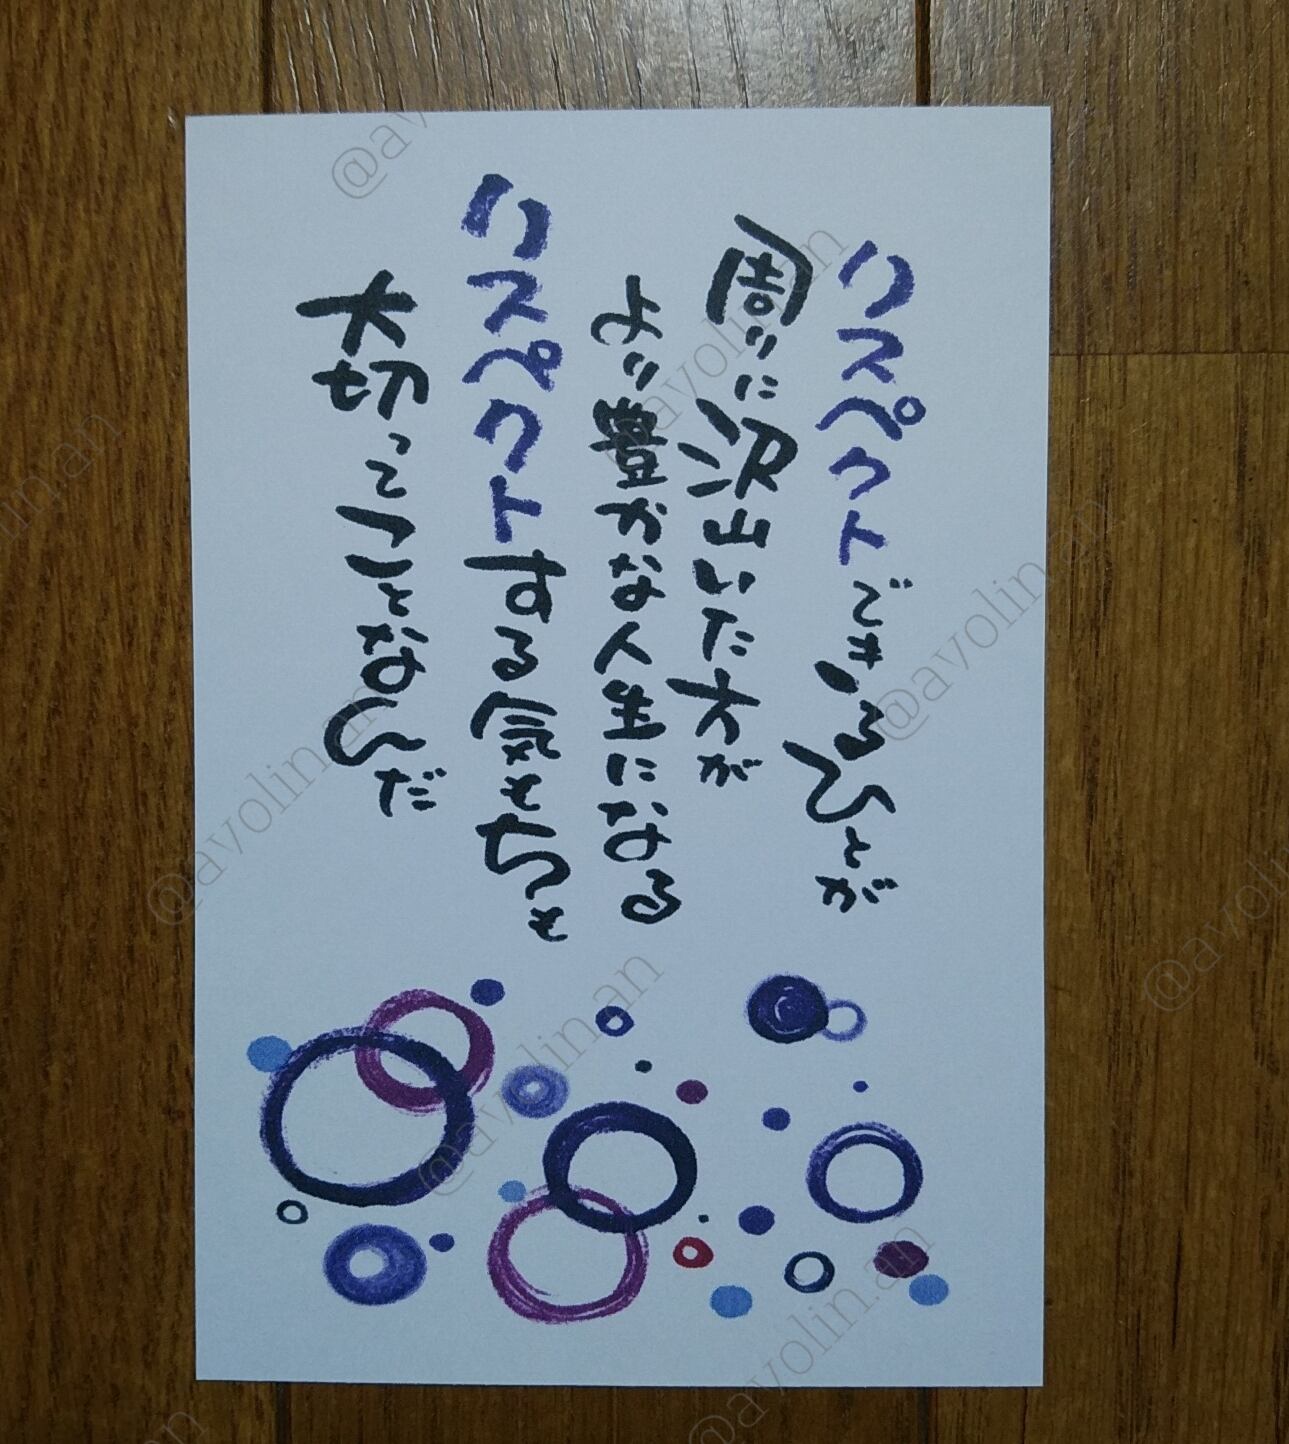 リスペクトできるひとが
周りに沢山いた方が
より豊かな人生になる
リスペクトする気もちも
大切ってことなんだ
@avolin.an
@avolin.an
@avolin.an
@avolin.an
@avolin.an
@avolin.an
@avolin.an